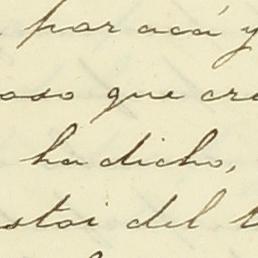 por acá y
oso que cre
ha dicho,
stoi del t